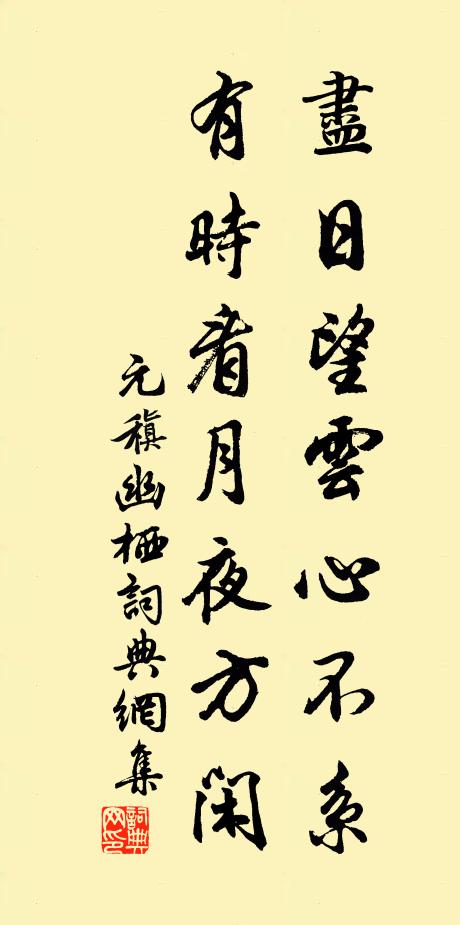 盡日望雲心不系
有時看月夜方闲
元稹幽栖詞典網集
詞典网印